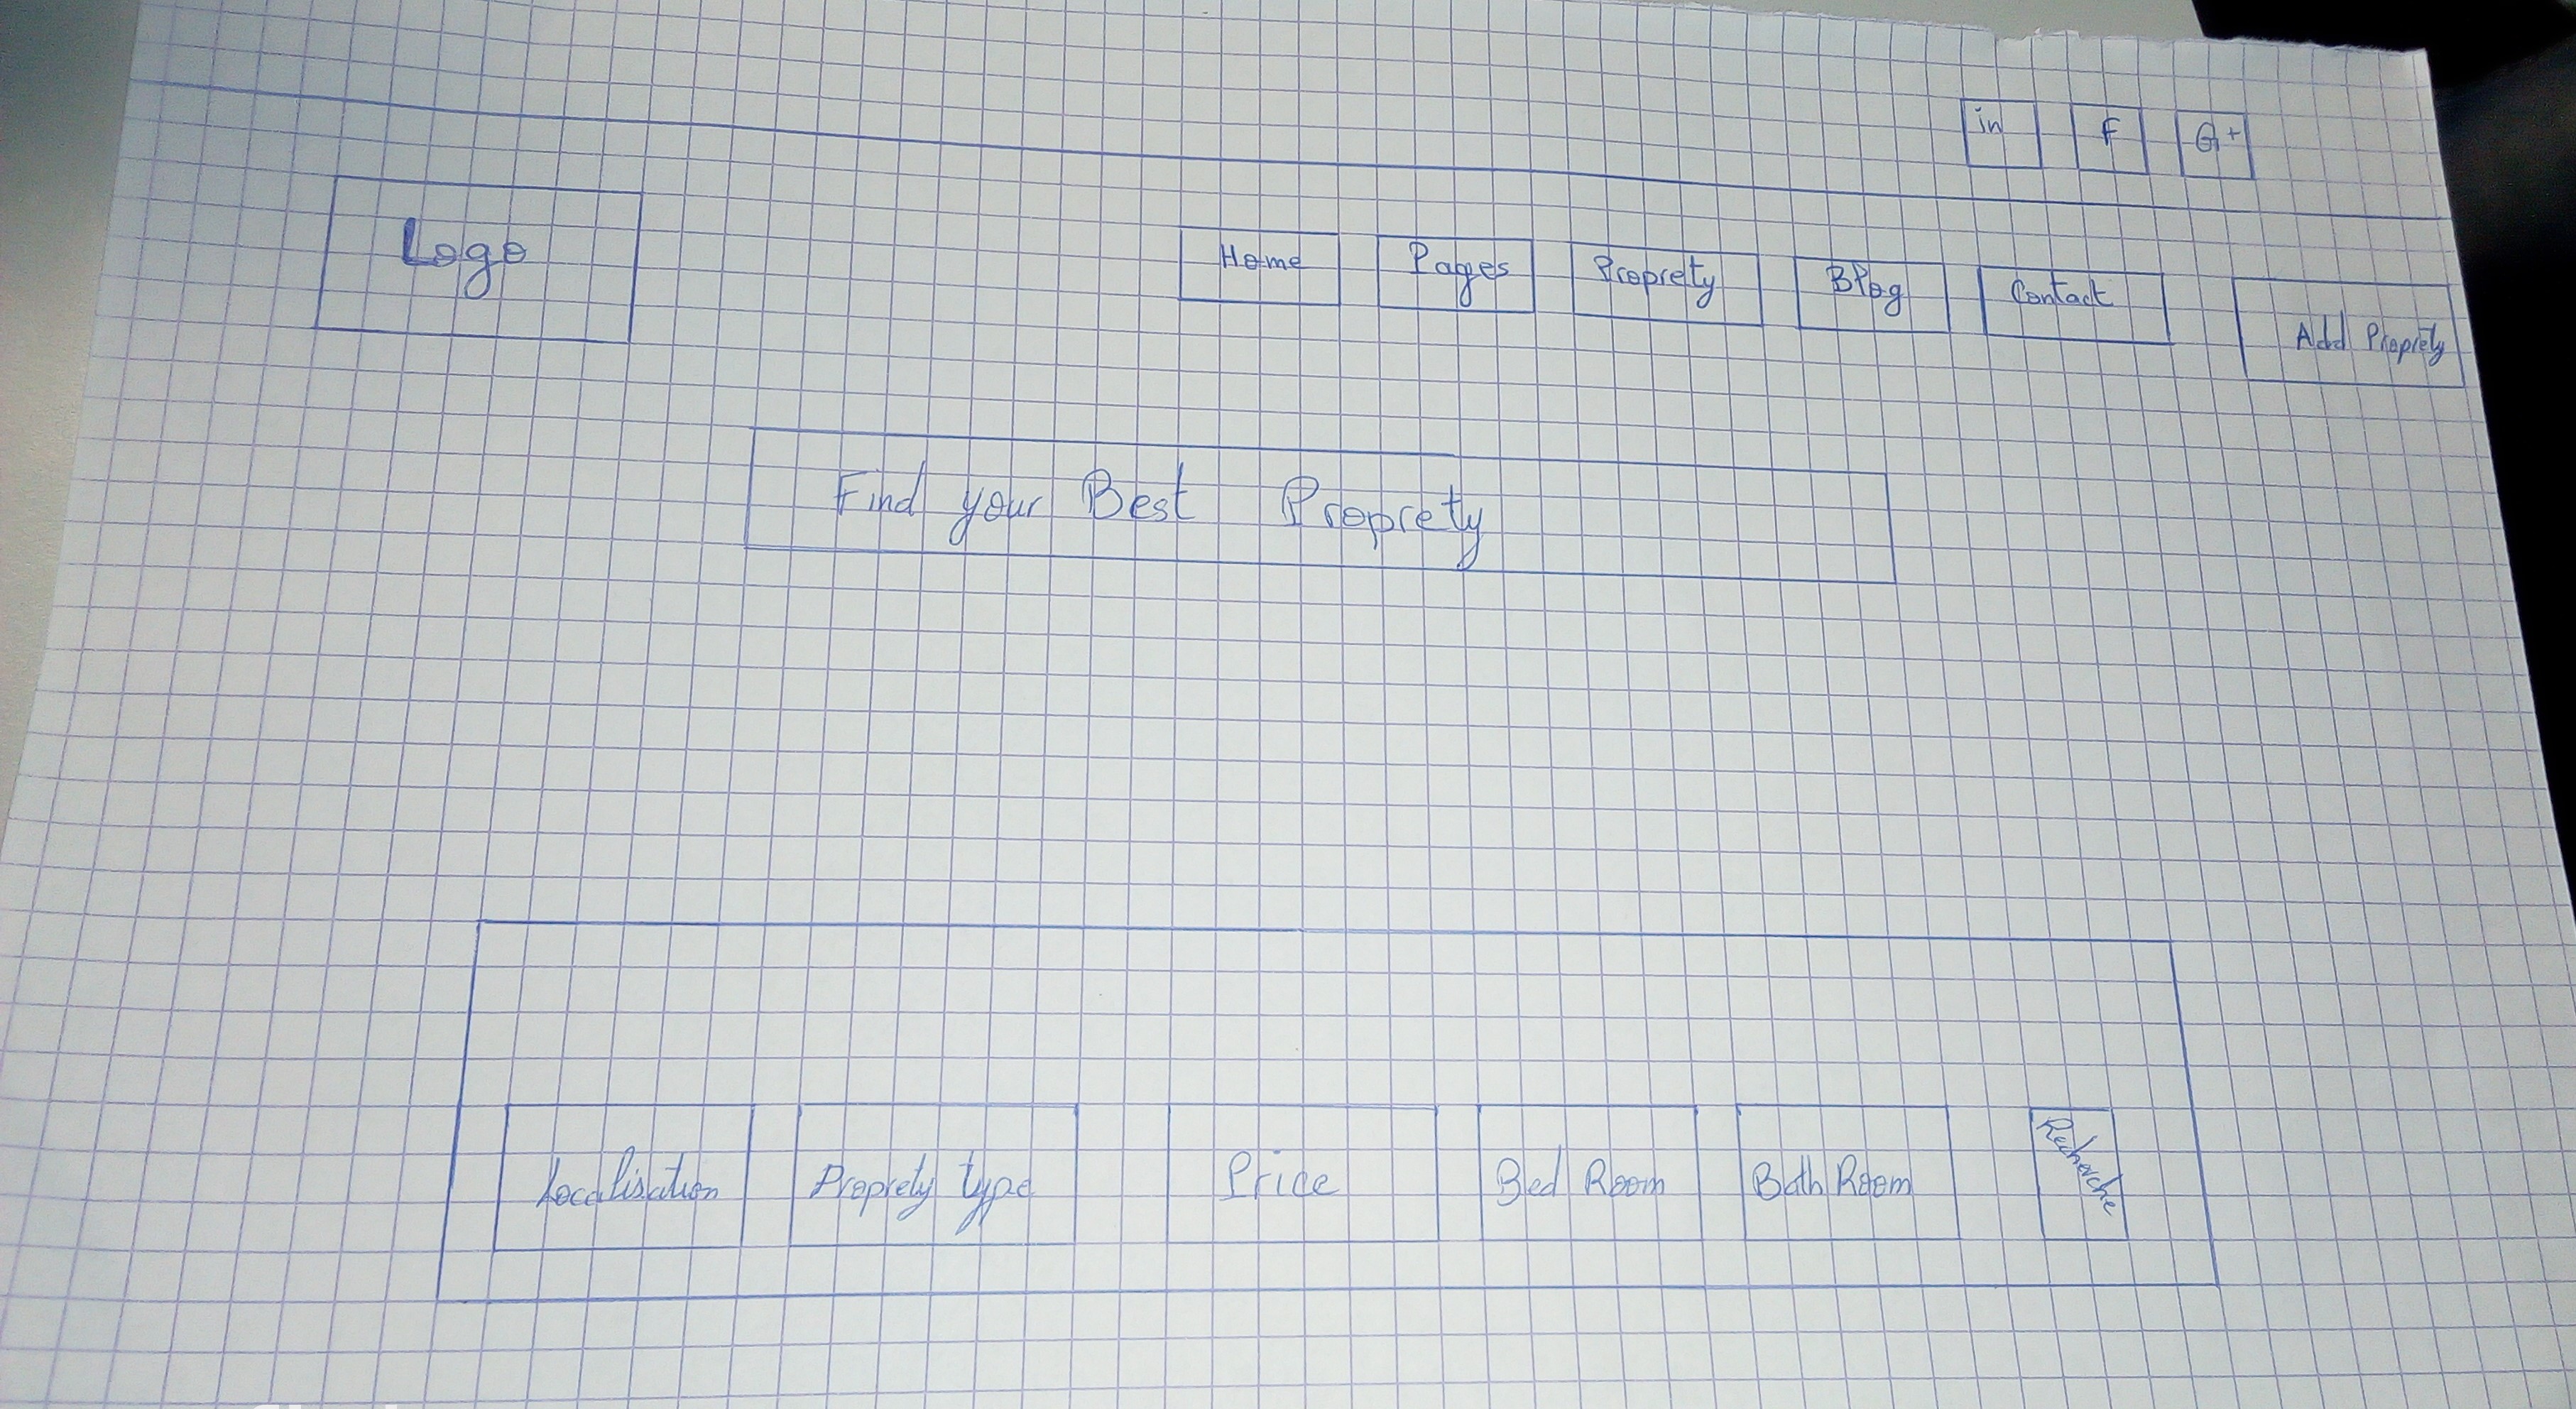 in F G+
Logo Home Pages Proprety Blog Contact Add Proprety
Find your Best Proprety
Localisation Proprety type Price Bed Room Bath Room Recherche